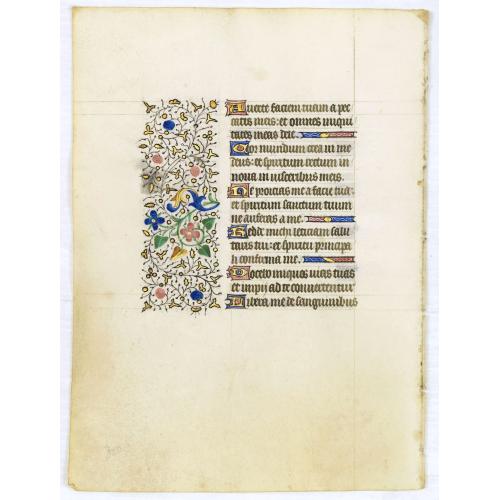 Averte faciem tuam a pec
catis meis: et omnes iniqui
tates meas dele.
Cor mundum crea in me
deus: et spiritum rectum in
nova in visceribus meis.
Ne proicias me a facie tua:
et spiritum sanctum tuum
ne auferas a me.
Redde michi leticiam salu
taris tui: et spiritu principa
li confirma me.
Docebo iniquos vias tuas
et impii ad te convertentur
Libera me de sanguinibus